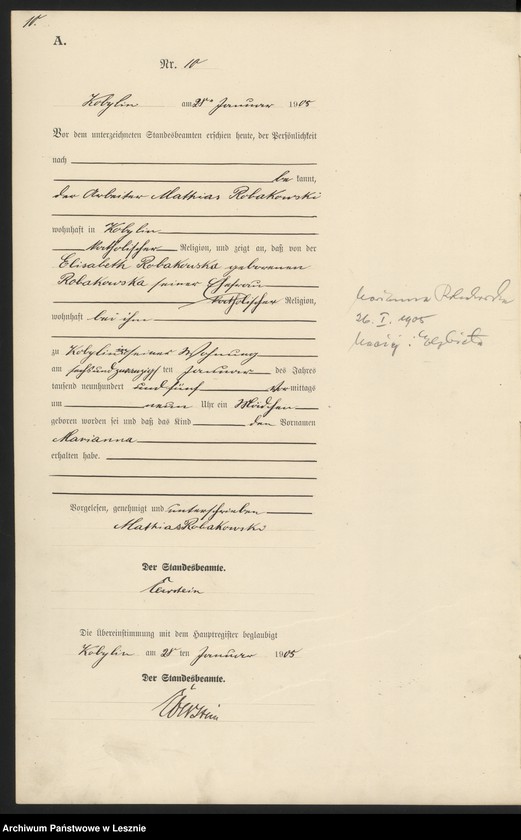 10.
A.
Nr. 10
Kobylin am 28ten Januar 1905
Vor dem unterzeichneten Standesbeamten erschien heute, der Persönlichkeit
nach
be kannt,
der Arbeiter Mathias Robakowski
wohnhaft in Kobylin
katholischer Religion, und zeigt an, daß von der
Elisabeth Robakowska geborenen
Robakowska seiner Ehefrau
katholischer Religion,
wohnhaft bei ihm
zu Kobylin in seiner Wohnung
am sechsundzwanzigsten Januar des Jahres
tausend neunhundert und fünf Vormittags
um neun Uhr ein Mädchen
geboren worden sei und daß das Kind den Vornamen
Marianna
erhalten habe.
Vorgelesen, genehmigt und unterschrieben
Mathias Robakowski
Der Standesbeamte.
Die Übereinstimmung mit dem Hauptregister beglaubigt
Kobylin am 28 ten Januar 1905
Der Standesbeamte.
26. I. 1905
Archiwum Państwowe w Lesznie